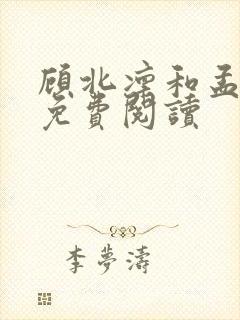 顾北凉和孟
免费閱讀
李夢濤